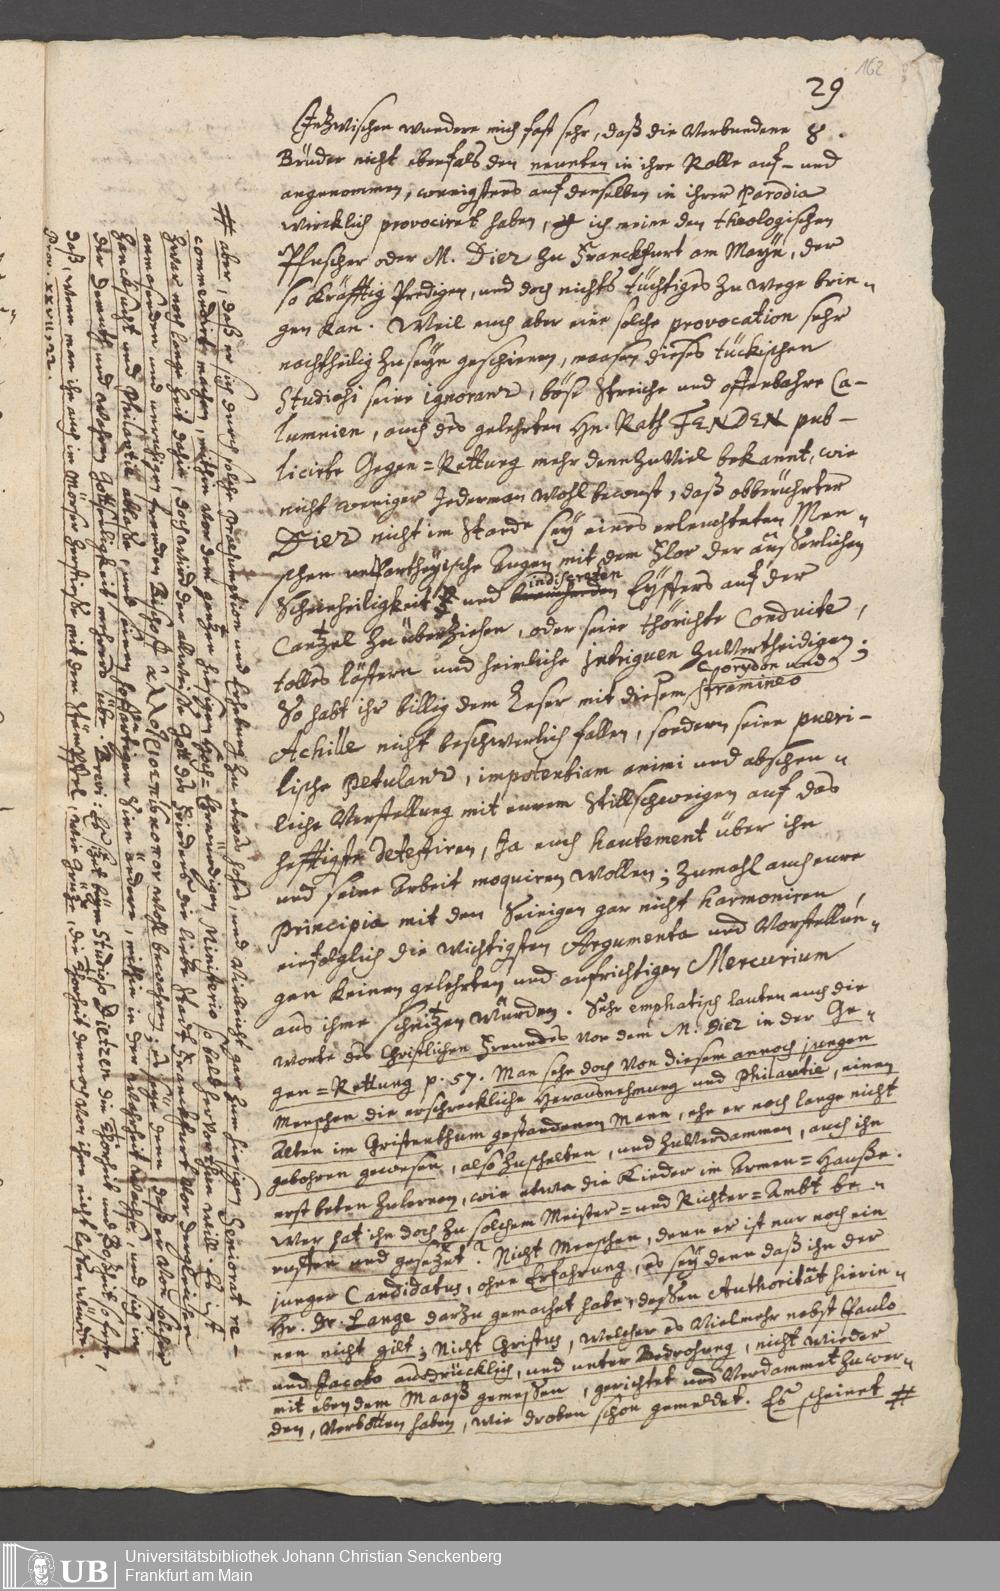 162
29
Inzwischen wundere mich fast sehr, daß die Verbundene 8.
Brüder nicht ebenfals den neunten in ihre Rolle auf- und
angenommen, wenigstens auf denselben in ihrer Parodia
wircklich provociret haben, ich meine den theologischen
Pfuscher oder M. Diez zu Franckfurt am Mayn, der
so kräfftig Predigen, und doch nichts tüchtiges zu wege brin=
gen kan. Weil euch aber eine solche provocation sehr
nachtheilig zu seyn geschienen, maasen dieses tückischen
Studiosi seine ignoranz, böse Streiche und offenbahre Ca-
lumnien, auch des gelehrten Hn. Rath FENDEN pub-
licirte Gegen=Rettung mehr denn zu viel bekannt, wie
nicht weniger Jederman wohl bewust, daß obberührter
Diez nicht im Stande sey eines erleuchteten Men=
schen unPartheyische Augen mit dem Flor der äusserlichen
Scheinheiligkeit und indiscreten Eyffers auf der
Cantzel zu überziehen, oder seine thörichte Conduite,
tolles lästern und heimliche Intriguen zu vertheidigen;
So habt ihr billig dem Leser mit diesem Corydon und Stramineo
Achille nicht beschwerlich fallen, sondern seine pueri-
lische petulanz, impotentiam animi und abscheu=
liche Verstellung mit eurem Stillschweigen auf das
hefftigste detestiren, Ja euch hautement über ihn
und seine Arbeit moquiren wollen; Zumahl auch eure
Principia mit den Seinigen gar nicht harmoniren
einfolglich die wichtigsten Argumenta und Vorstellun=
gen keinen gelehrten und aufrichtigen Mercurium
aus ihme schnitzen würden. Sehr emphatisch lauten auch die
Worte des Christlichen Freundes von dem M. Diez in der Ge=
gen=Rettung p. 57. Man sehe doch von diesem annoch jungen
Menschen die erschreckliche Herausnehmung und Philautie, einen
Alten im Christenthum gestandenen Mann, ehe er noch lange nicht
gebohren gewesen, also zu schelten, und zu Verdammen, auch ihn
erst beten zu lernen, wie etwa die Kinder im Armen=Hausse.
Wer hat ihn doch zu solchem Meister= und Richter=Ambt be=
ruffen und gesetzet? Nicht Menschen, denn er ist nur noch ein
junger Candidatus, ohne Erfahrung, es sey denn daß ihn der
Hr. Dr. Lange darzu gemachet habe, dessen Authorität hierin=
nen nicht gilt; Nicht Christus, welcher es Vielmehr nebst Paulo
und Jacobo ausdrücklich, und unter Bedrohung, nicht wieder
mit eben dem Maaß gemessen, gerichtet und Verdammet zu wer=
den, Verbotten haben, wie droben schon gemeldet. Es scheinet #
# aber, daß er sich durch solche Praesumption und Erhebung zu etwas hohes, und Vielleicht gar zum hiesigen Seniorat re-
commendirt machen, mithin vor dem gantzen hiesigen Hoch=Ehrwürdigen Ministerio so bald hervorthun will. Es ist
zwar noch lange Zeit dahin, doch wird der allweise Gott des Friedens die liebe Stadt Franckfurt vor dergleichen
anmasenden und unruhigen fremden Bischoff ἀλλοτριοεπίσκοπον wohl bewahren; es seye denn, daß er von solcher
Zancksucht und Philautie ablasse, und seinen hoffärtigen Sinn ändere, mithin in der Wahrheit wachse, und sich in
der Demuth und wahren Gottseligkeit mehrers übe. Brevi: Es sitzet beym Studioso Diezen die Thorheit und Boßheit so feste,
daß, wenn man ihn auch im Mörser zerstiesse mit dem Stämpffel, wie Grütze, die Thorheit dennoch von ihm nicht lassen würde.
Prov. XXVII, 22.
Universitätsbibliothek Johann Christian Senckenberg
Frankfurt am Main
UB